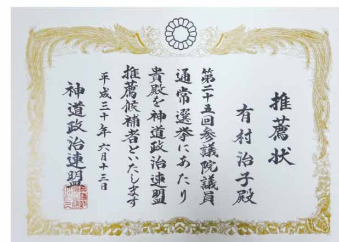 推薦状
有村治子殿
第二十五回参議院議員
通常選挙にあたり
貴殿を神道政治連盟
推薦候補者といたします
平成三十年六月十三日
神道政治連盟